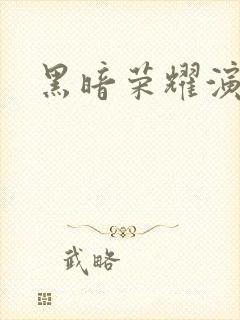 黑暗荣耀演
武略